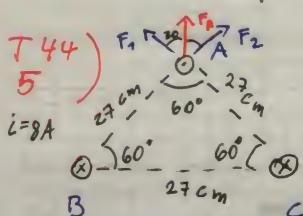 T 44
5 )
i=8A
F₁ 30 F_R A F₂
27 cm 60° 27 cm
60° 60°
27 cm
B C